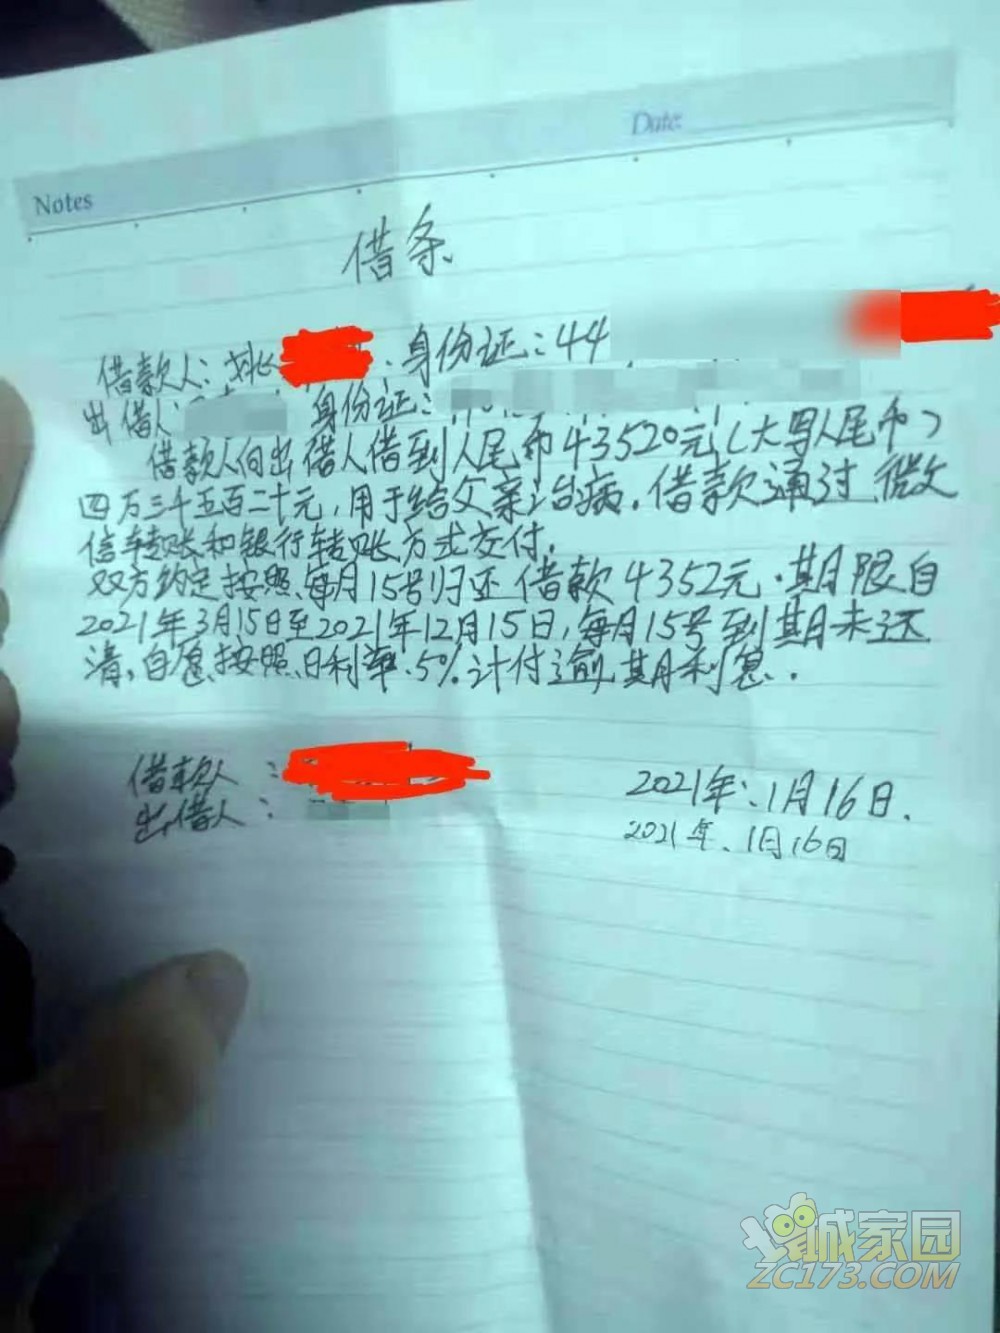 Date:
Notes
借条
借款人:姚 身份证:44
出借人: 身份证:
借款人向出借人借到人民币43520元(大写人民币)
四万三千五百二十元,用于给父亲治病。借款通过 微
信转账和银行转账方式交付,
双方约定按照每月15号归还借款4352元.期限自
2021年3月15日至2021年12月15日,每月15号到期未还
清,自愿按照日利率.5%计付逾期利息.
借款人:
2021年、1月16日.
出借人:
2021年、1月16日
诚家园
ZC173.COM